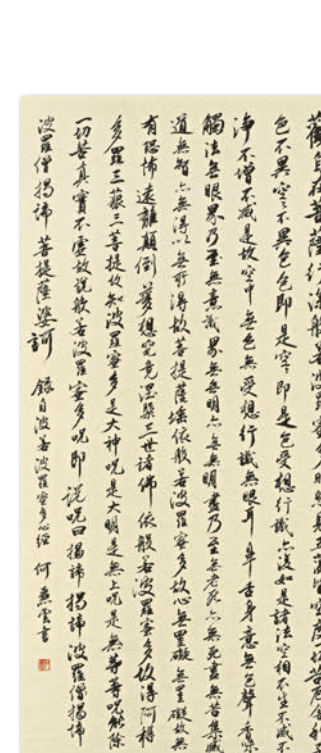 觀自在菩薩行深般若波羅蜜多時照見五蘊皆空度
色不異空空不異色色即是空空即是色受想行識亦復如是諸法空相不生不滅
淨不增不減是故空中無色無受想行識無眼耳鼻舌身意無色聲香味
觸法無眼界乃至無意識界無無明亦無無明盡乃至無老死亦無老死盡無苦集滅
道無智亦無得以無所得故菩提薩埵依般若波羅蜜多故心無罣礙無罣礙故無
有恐怖遠離顛倒夢想究竟涅槃三世諸佛依般若波羅蜜多故得阿耨
多羅三藐三菩提故知波羅蜜多是大神咒是大明是無上咒是無等等咒能除
一切苦真實不虛故說般若波羅蜜多咒即說咒曰揭諦揭諦波羅僧揭諦
波羅僧揭諦 菩提薩婆訶 錄自波若波羅蜜多心經 何燕雲書